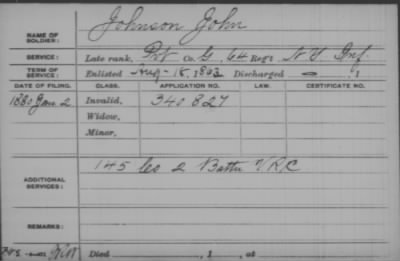 Johnson John
NAME OF
SOLDIER:
SERVICE: Late rank, Pvt Co. G, 64 Reg't N.Y. Inf
TERM OF
SERVICE: Enlisted Aug - 18, 1862 Discharged , 1
DATE OF FILING. CLASS. APPLICATION NO. LAW. CERTIFICATE NO.
1880 Jan. 2 Invalid, 340 827
Widow,
Minor,
ADDITIONAL
SERVICES:
145 Co 2 Battn V.R.C
REMARKS:
Died , 1 , at